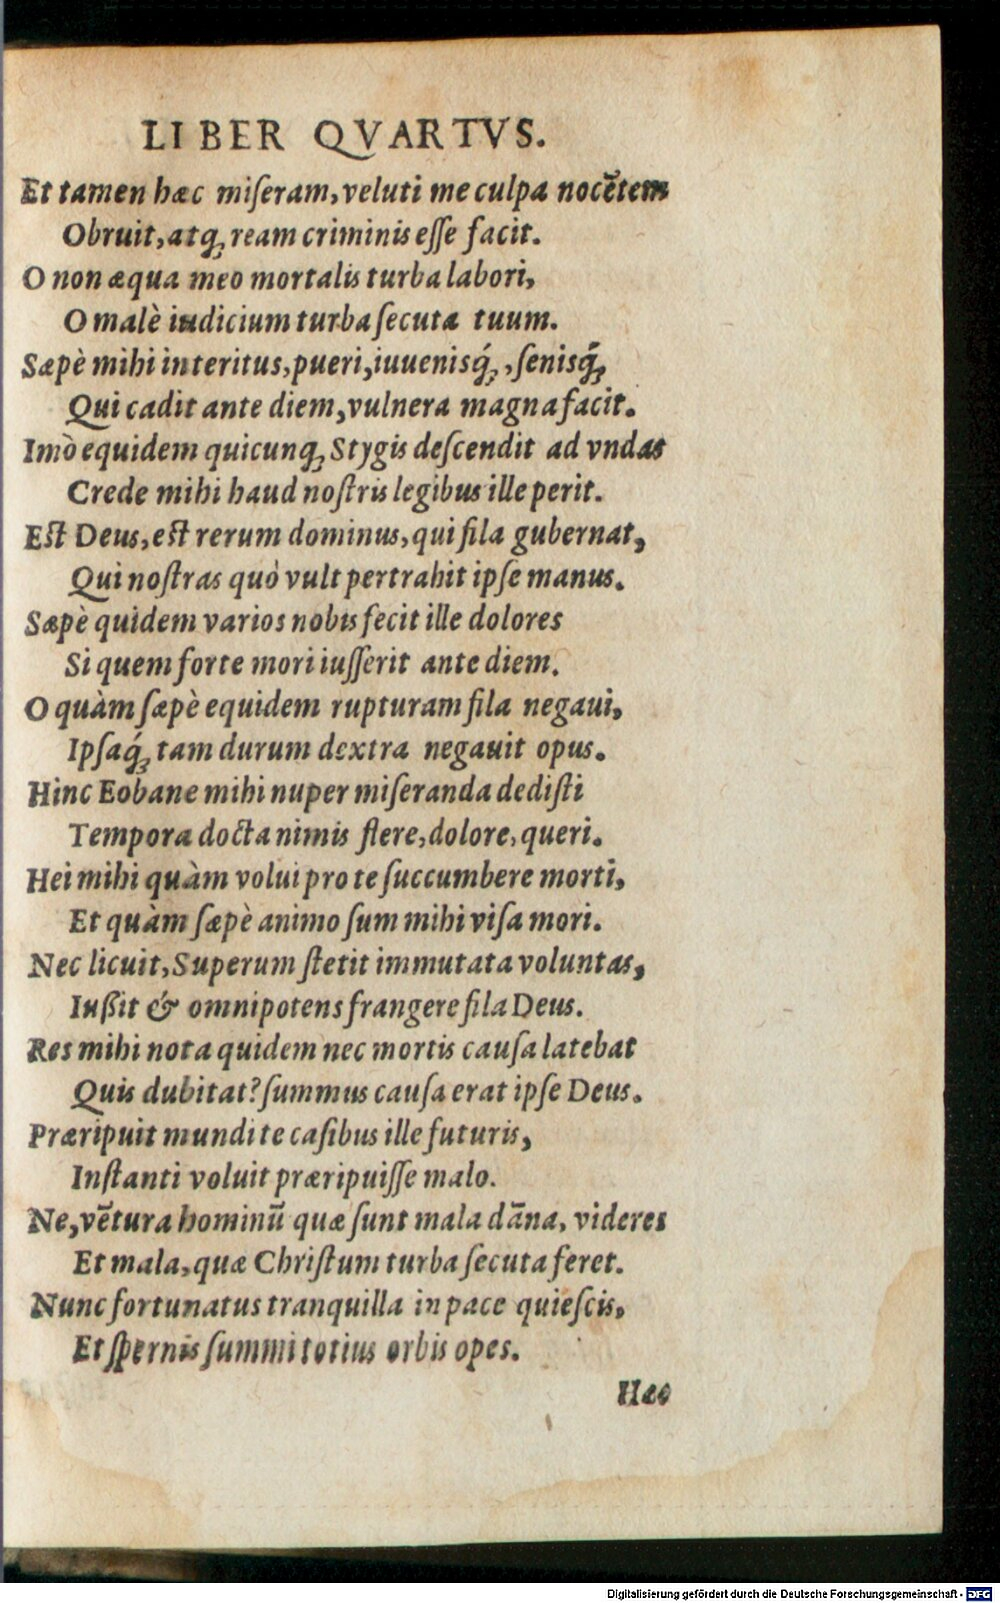 LIBER QVARTVS.
Et tamen hæc miſeram, veluti me culpa nocẽtem
Obruit, atq́ꝫ ream criminis eſſe facit.
O non æqua meo mortalis turba labori,
O malè iudicium turba ſecuta tuum.
Sæpè mihi interitus, pueri, iuuenisq́ꝫ, ſenisq́ꝫ,
Qui cadit ante diem, vulnera magna facit.
Imò equidem quicunqꝫ Stygis deſcendit ad vndas
Crede mihi haud noſtris legibus ille perit.
Eſt Deus, eſt rerum dominus, qui fila gubernat,
Qui noſtras quò vult pertrahit ipſe manus.
Sæpè quidem varios nobis fecit ille dolores
Si quem forte mori iuſſerit ante diem.
O quàm ſæpè equidem rupturam fila negaui,
Ipſaq́ꝫ tam durum dextra negauit opus.
Hinc Eobane mihi nuper miſeranda dediſti
Tempora docta nimis flere, dolore, queri.
Hei mihi quàm volui pro te ſuccumbere morti,
Et quàm ſæpè animo ſum mihi viſa mori.
Nec licuit, Superum ſtetit immutata voluntas,
Iußit & omnipotens frangere fila Deus.
Res mihi nota quidem nec mortis cauſa latebat
Quis dubitat? ſummus cauſa erat ipſe Deus.
Præripuit mundi te caſibus ille futuris,
Inſtanti voluit præripuiſſe malo.
Ne, vẽtura hominũ quæ ſunt mala dãna, videres
Et mala, quæ Chriſtum turba ſecuta feret.
Nunc fortunatus tranquilla in pace quieſcis,
Et ſpernis ſummi totius orbis opes.
Hæc
Digitalisierung gefördert durch die Deutsche Forschungsgemeinschaft - DFG